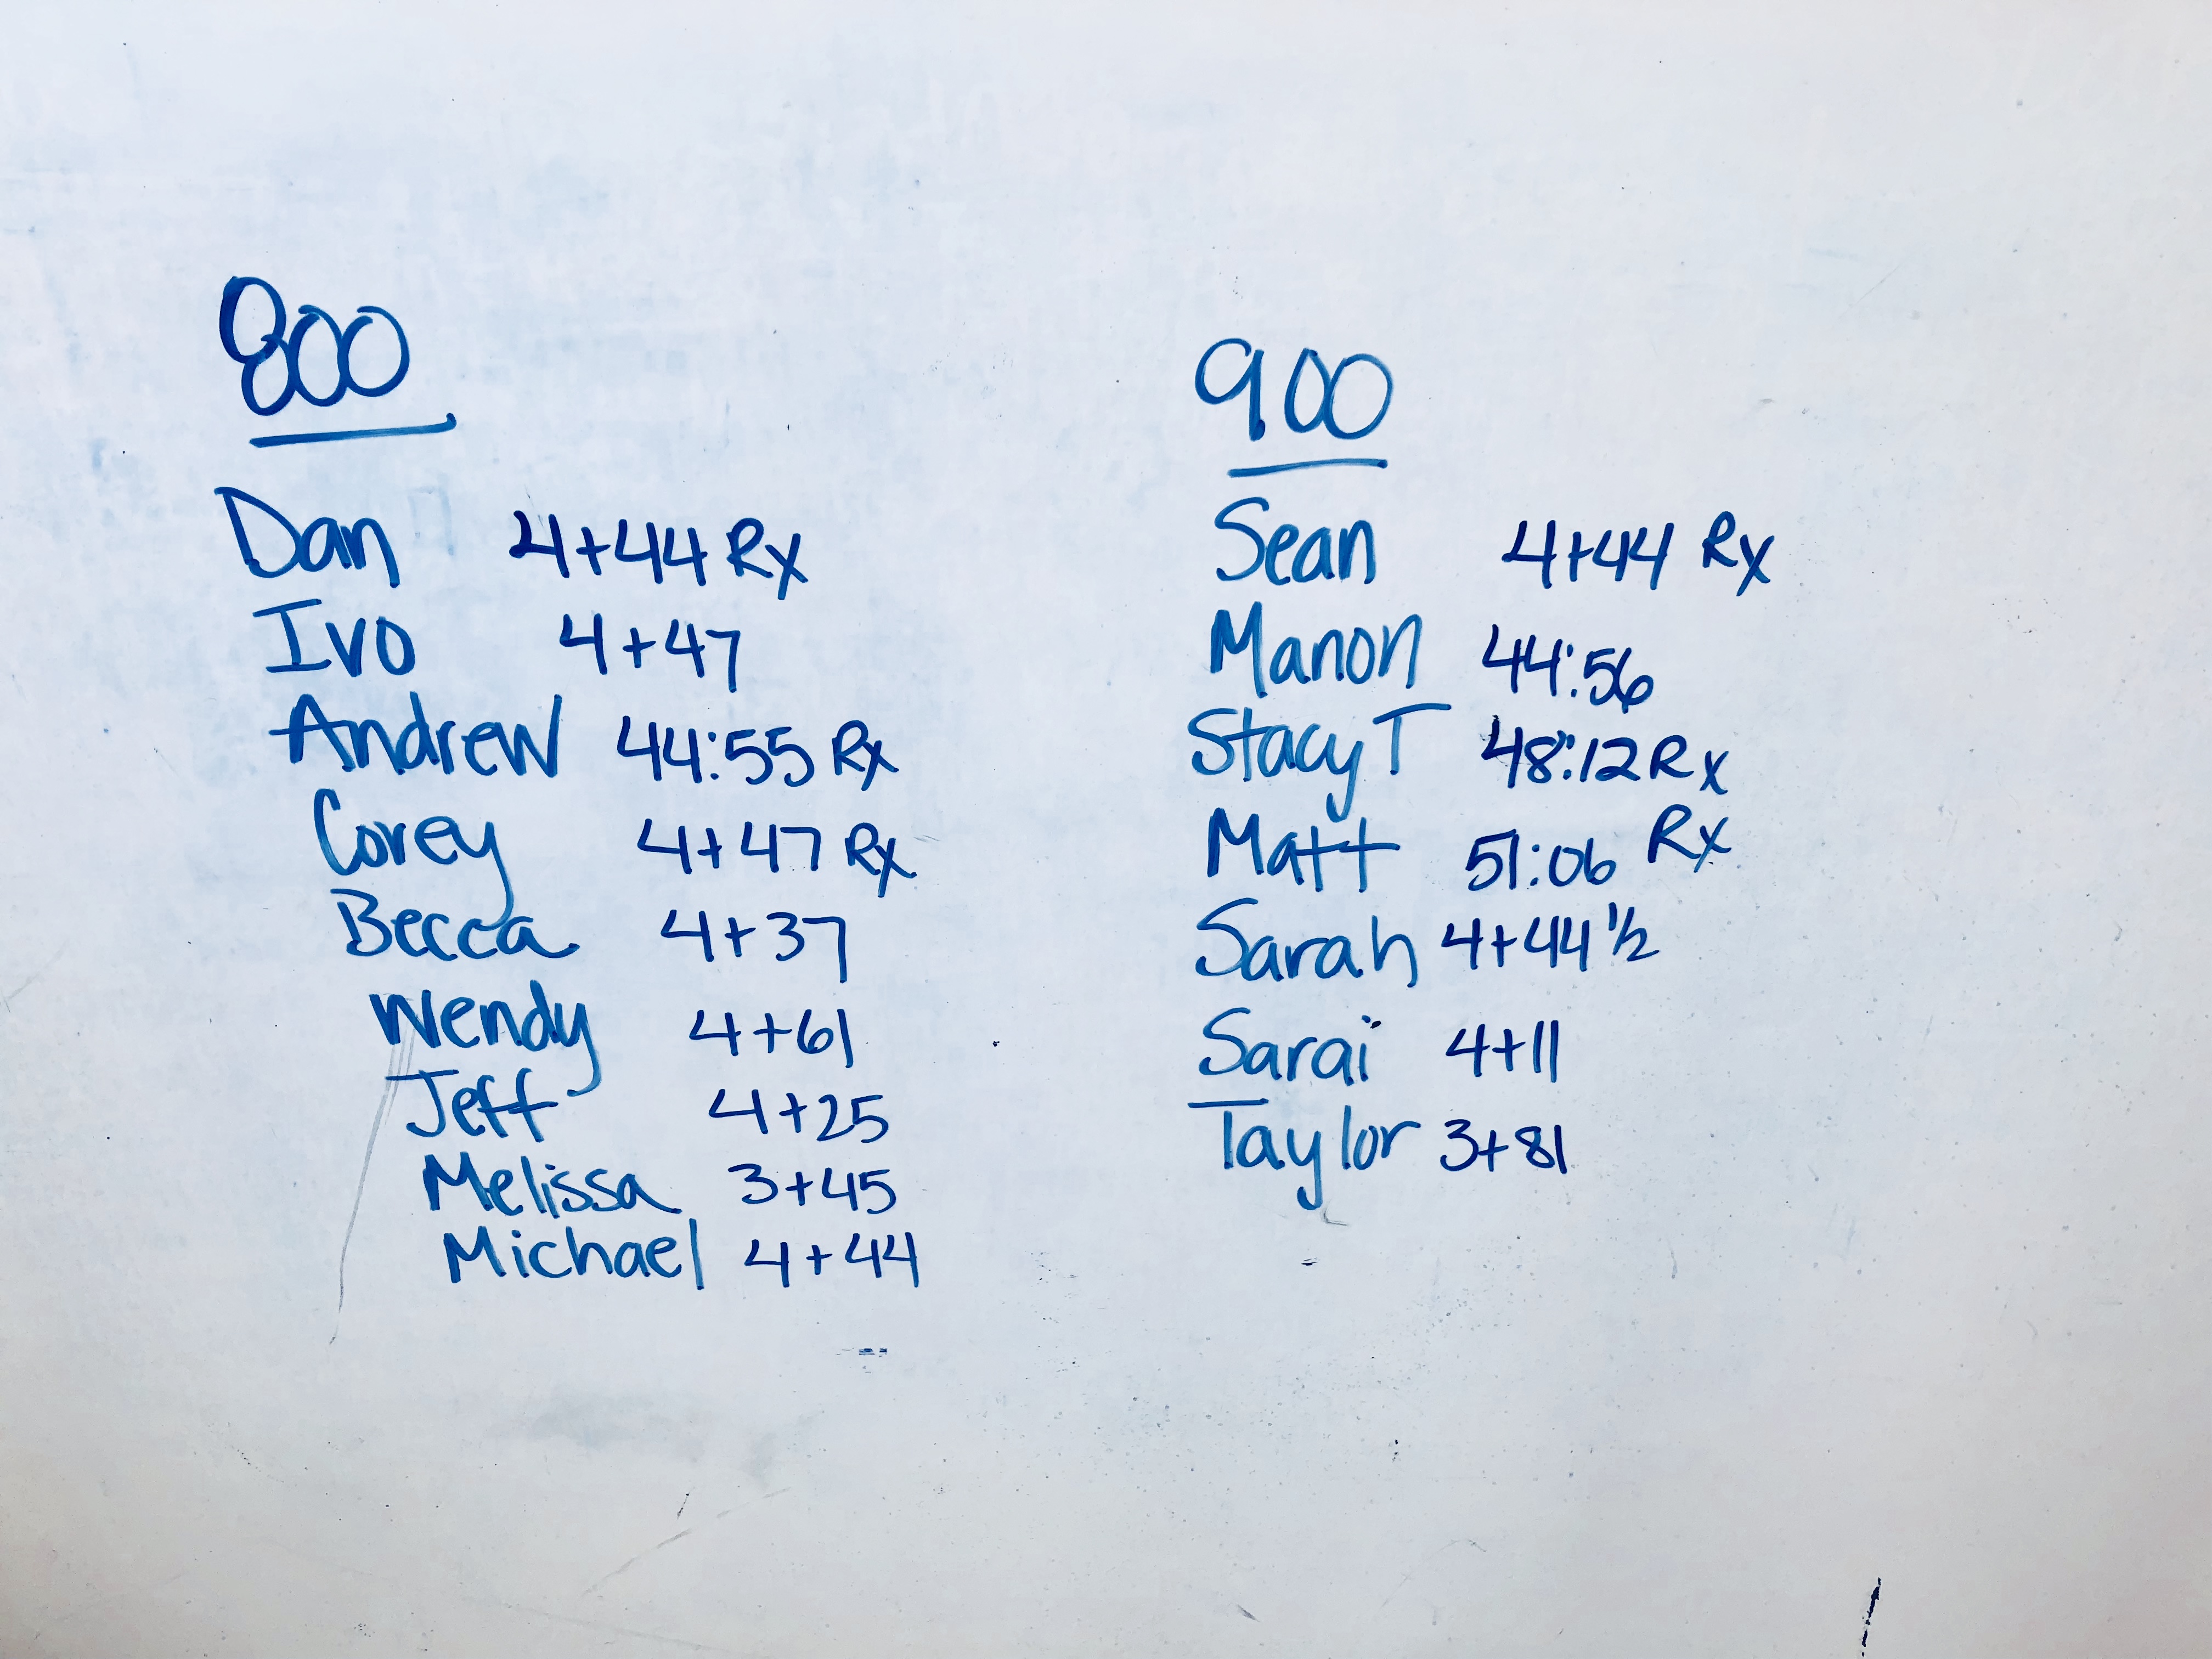 800
Dan 4+44 Rx
Ivo 4+47
Andrew 44:55 Rx
Corey 4+47 Rx
Becca 4+37
Wendy 4+61
Jeff 4+25
Melissa 3+45
Michael 4+44
900
Sean 4+44 Rx
Manon 44:56
Stacy T 48:12 Rx
Matt 51:06 Rx
Sarah 4+44 1/2
Sarai 4+11
Taylor 3+81